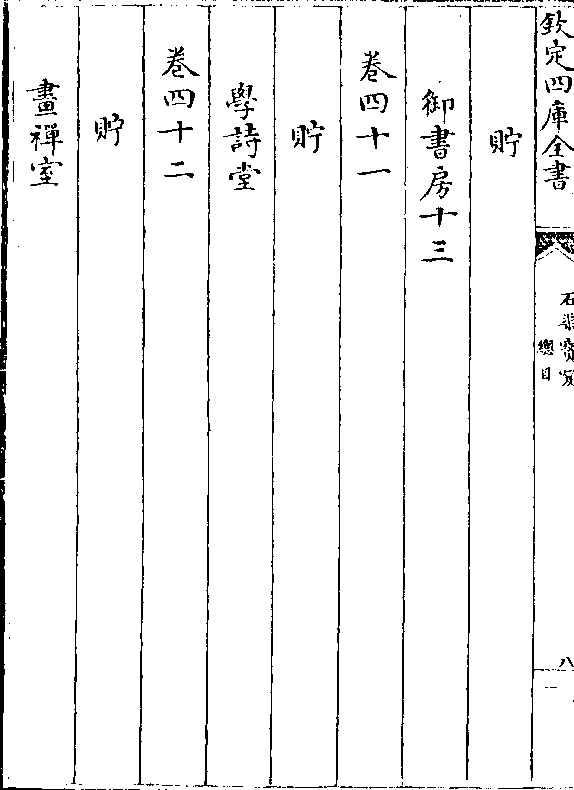 欽定四庫全書
石渠寶笈
總目
八
貯
御書房十三
卷四十一
貯
學詩堂
卷四十二
貯
畫禪室